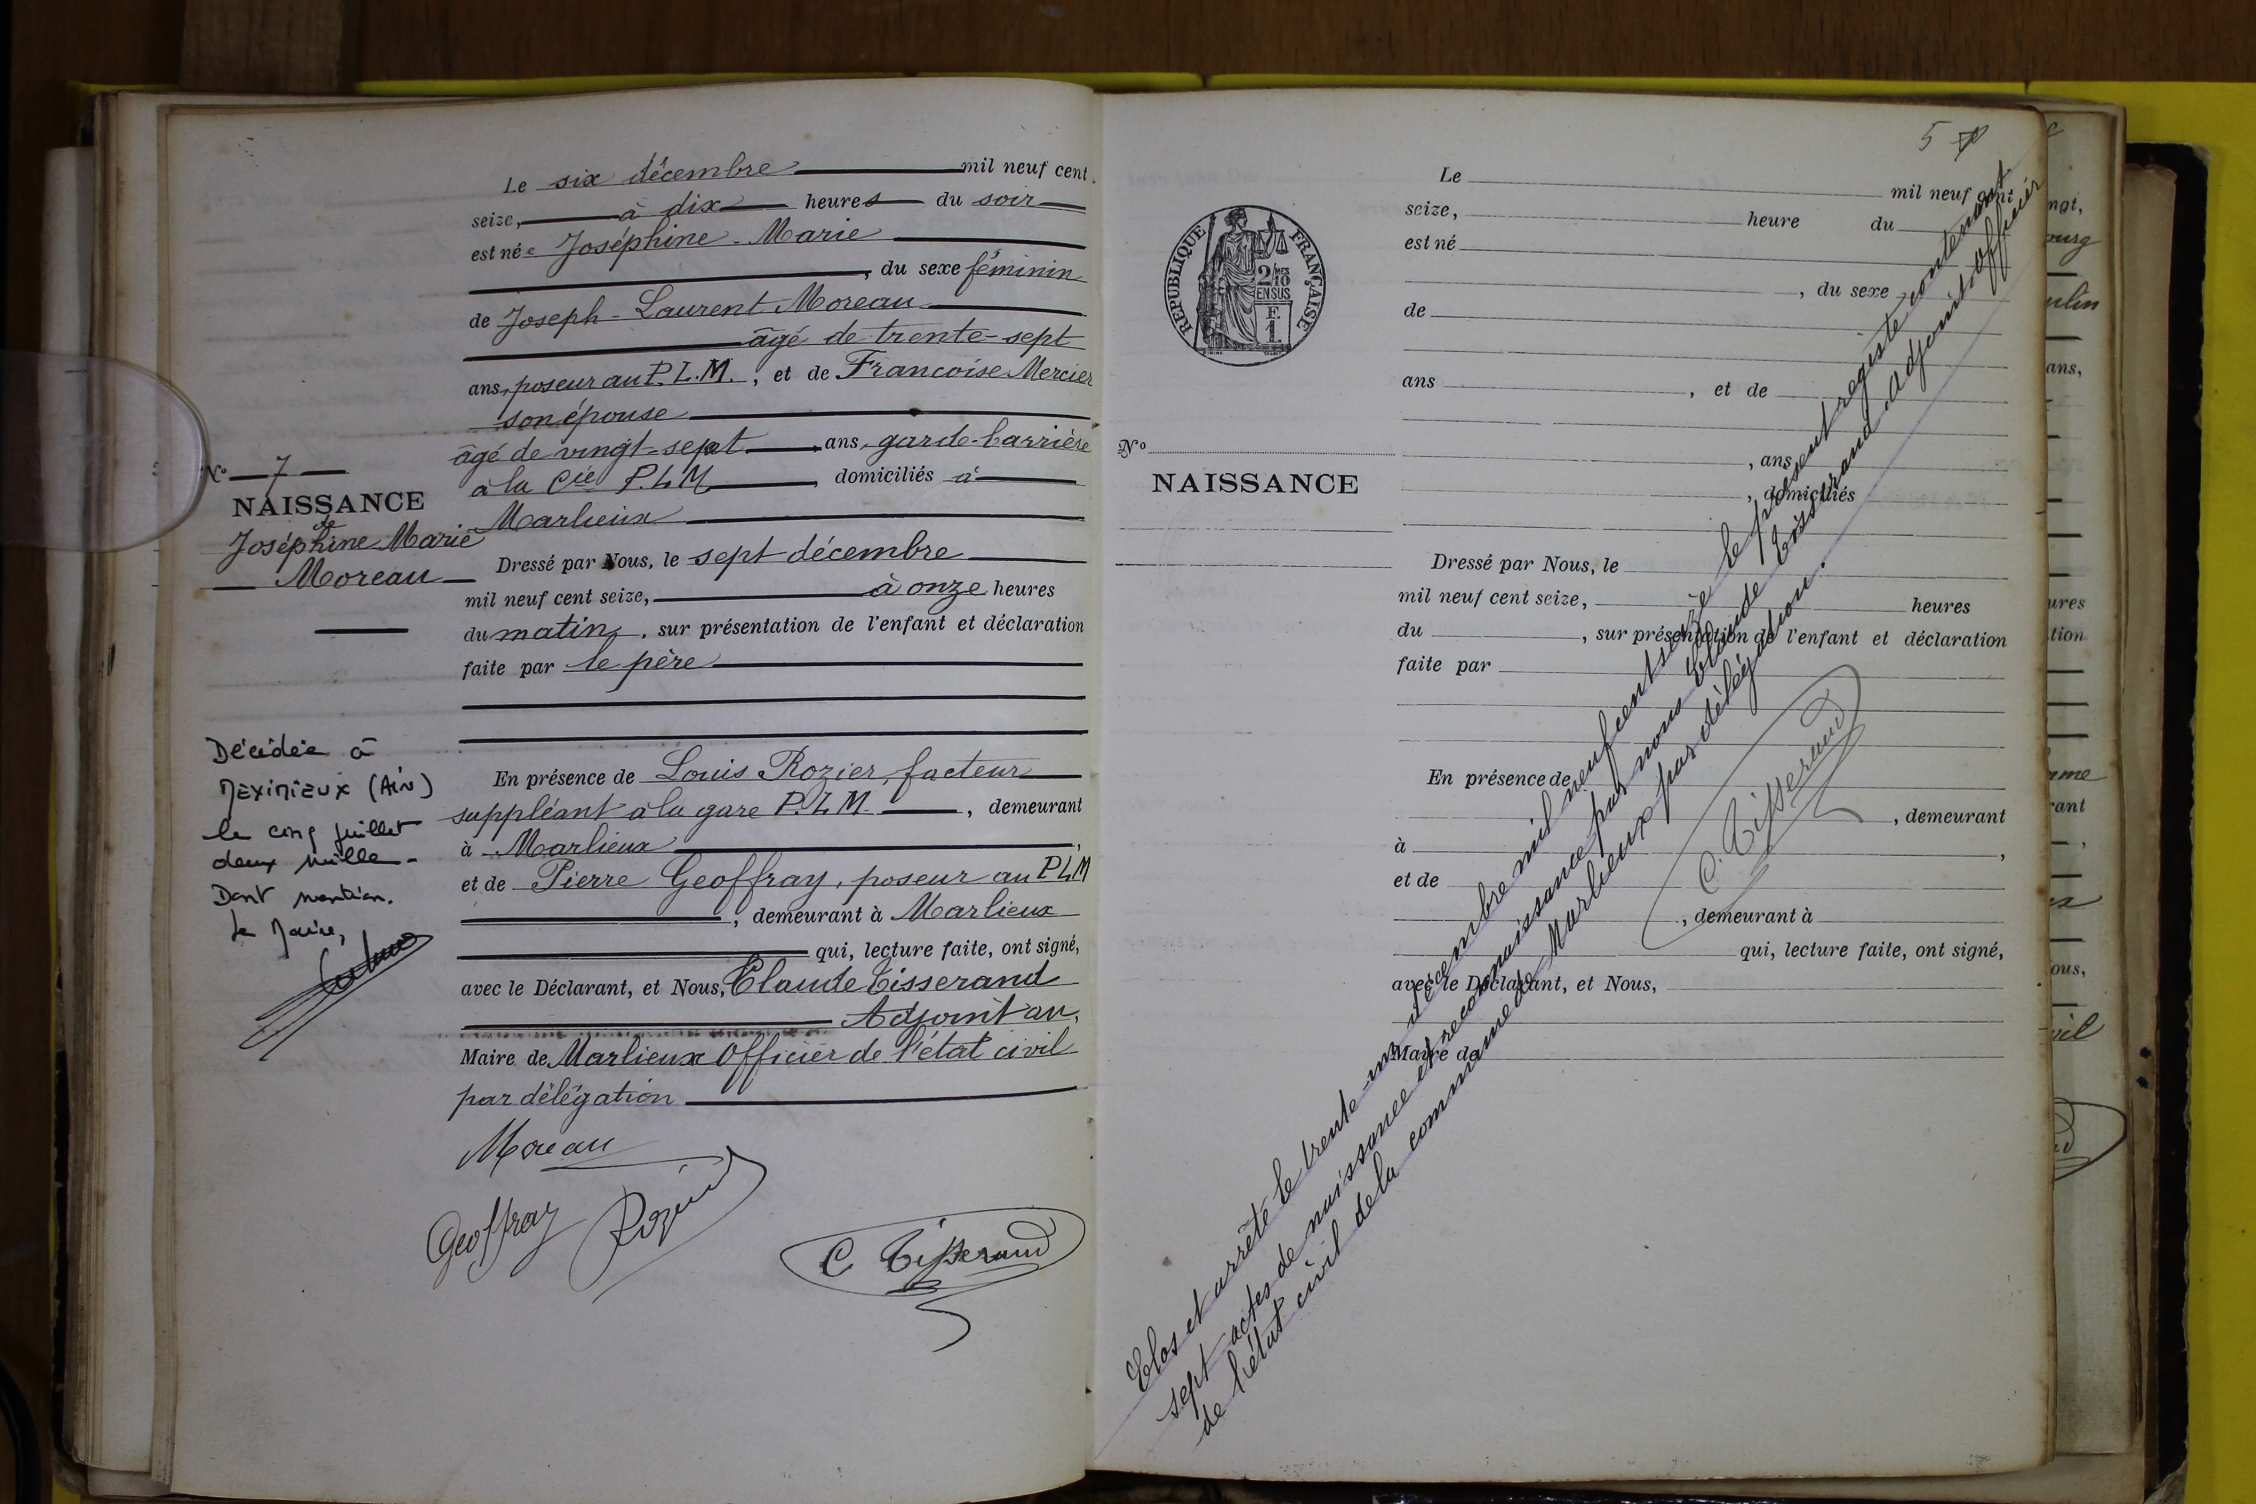 Le six décembre mil neuf cent
seize, à dix heures du soir
est née Joséphine-Marie
, du sexe féminin
de Joseph-Laurent Moreau
âgé de trente-sept
ans, poseur au P.L.M. , et de Francoise Mercier
son épouse
âgé de vingt-sept ans, garde-barrière
à la Cie P.L.M , domiciliés à
Marlieux
Dressé par Nous, le sept décembre
mil neuf cent seize, à onze heures
du matin , sur présentation de l'enfant et déclaration
faite par le père
En présence de Louis Rozier, facteur
suppléant à la gare P.L.M. , demeurant
à Marlieux ,
et de Pierre Geoffray, poseur au PLM
, demeurant à Marlieux
qui, lecture faite, ont signé,
avec le Déclarant, et Nous, Claude Tisserand
Adjoint au,
Maire de Marlieux Officier de l'état civil
par délégation
Moreau
Geoffray Rozier
C Tisserand
No 7
NAISSANCE
de
Joséphine Marie
Moreau
Décédée à
MEXIMIEUX (AIN)
le cinq juillet
deux mille -
Dont mention.
Le Maire,
5
RÉPUBLIQUE FRANÇAISE
2/10es
EN SUS
F.
1
No
NAISSANCE
Le mil neuf cent
seize, heure du
est né
, du sexe
de
ans , et de
, ans
, domiciliés
Dressé par Nous, le
mil neuf cent seize, heures
du , sur présentation de l'enfant et déclaration
faite par
En présence de
, demeurant
à ,
et de
, demeurant à
qui, lecture faite, ont signé,
avec le Déclarant, et Nous,
Maire de
Clos et arrêté le trente-un décembre mil neuf cent seize le présent registre contenant
sept actes de naissance et reconnaissance par nous Claude Tisserand Adjoint officier
de l'état civil de la commune de Marlieux par délégation.
C. Tisserand
ngt,
ourg
ulin
ans,
ures
tion
rant
ous,
vil